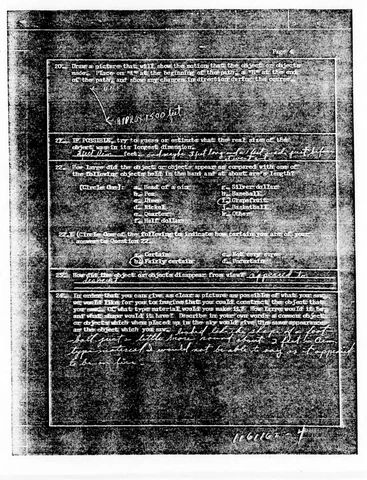 Page 4
20. Draw a picture that will show the motion that the object or objects
made. Place an "A" at the beginning of the path, a "B" at the end
of the path, and show any changes in direction during the course.
Approx 1500 feet
21. IF POSSIBLE, try to guess or estimate what the real size of the
object was in its longest dimension.
feet.
22. How large did the object or objects appear as compared with one of
the following objects held in the hand and at about arm's length?
(Circle One): a. Head of a pin g. Silver dollar
b. Pea h. Baseball
c. Dime i. Grapefruit
d. Nickel j. Basketball
e. Quarter k. Other
f. Half dollar
22.1 (Circle One of the following to indicate how certain you are of your
answer to Question 22.
a. Certain c. Not very sure
b. Fairly certain d. Uncertain
23. How did the object or objects disappear from view? appeared to
24. In order that you can give as clear a picture as possible of what you saw,
we would like for you to imagine that you could construct the object that
you saw. Of what type material would you make it? How large would it be,
and what shape would it have? Describe in your own words a common object
or objects which when placed up in the sky would give the same appearance
as the object which you saw.
ball just a little more round about 2 feet
type material I would not be able to say as it appeared
to be
4